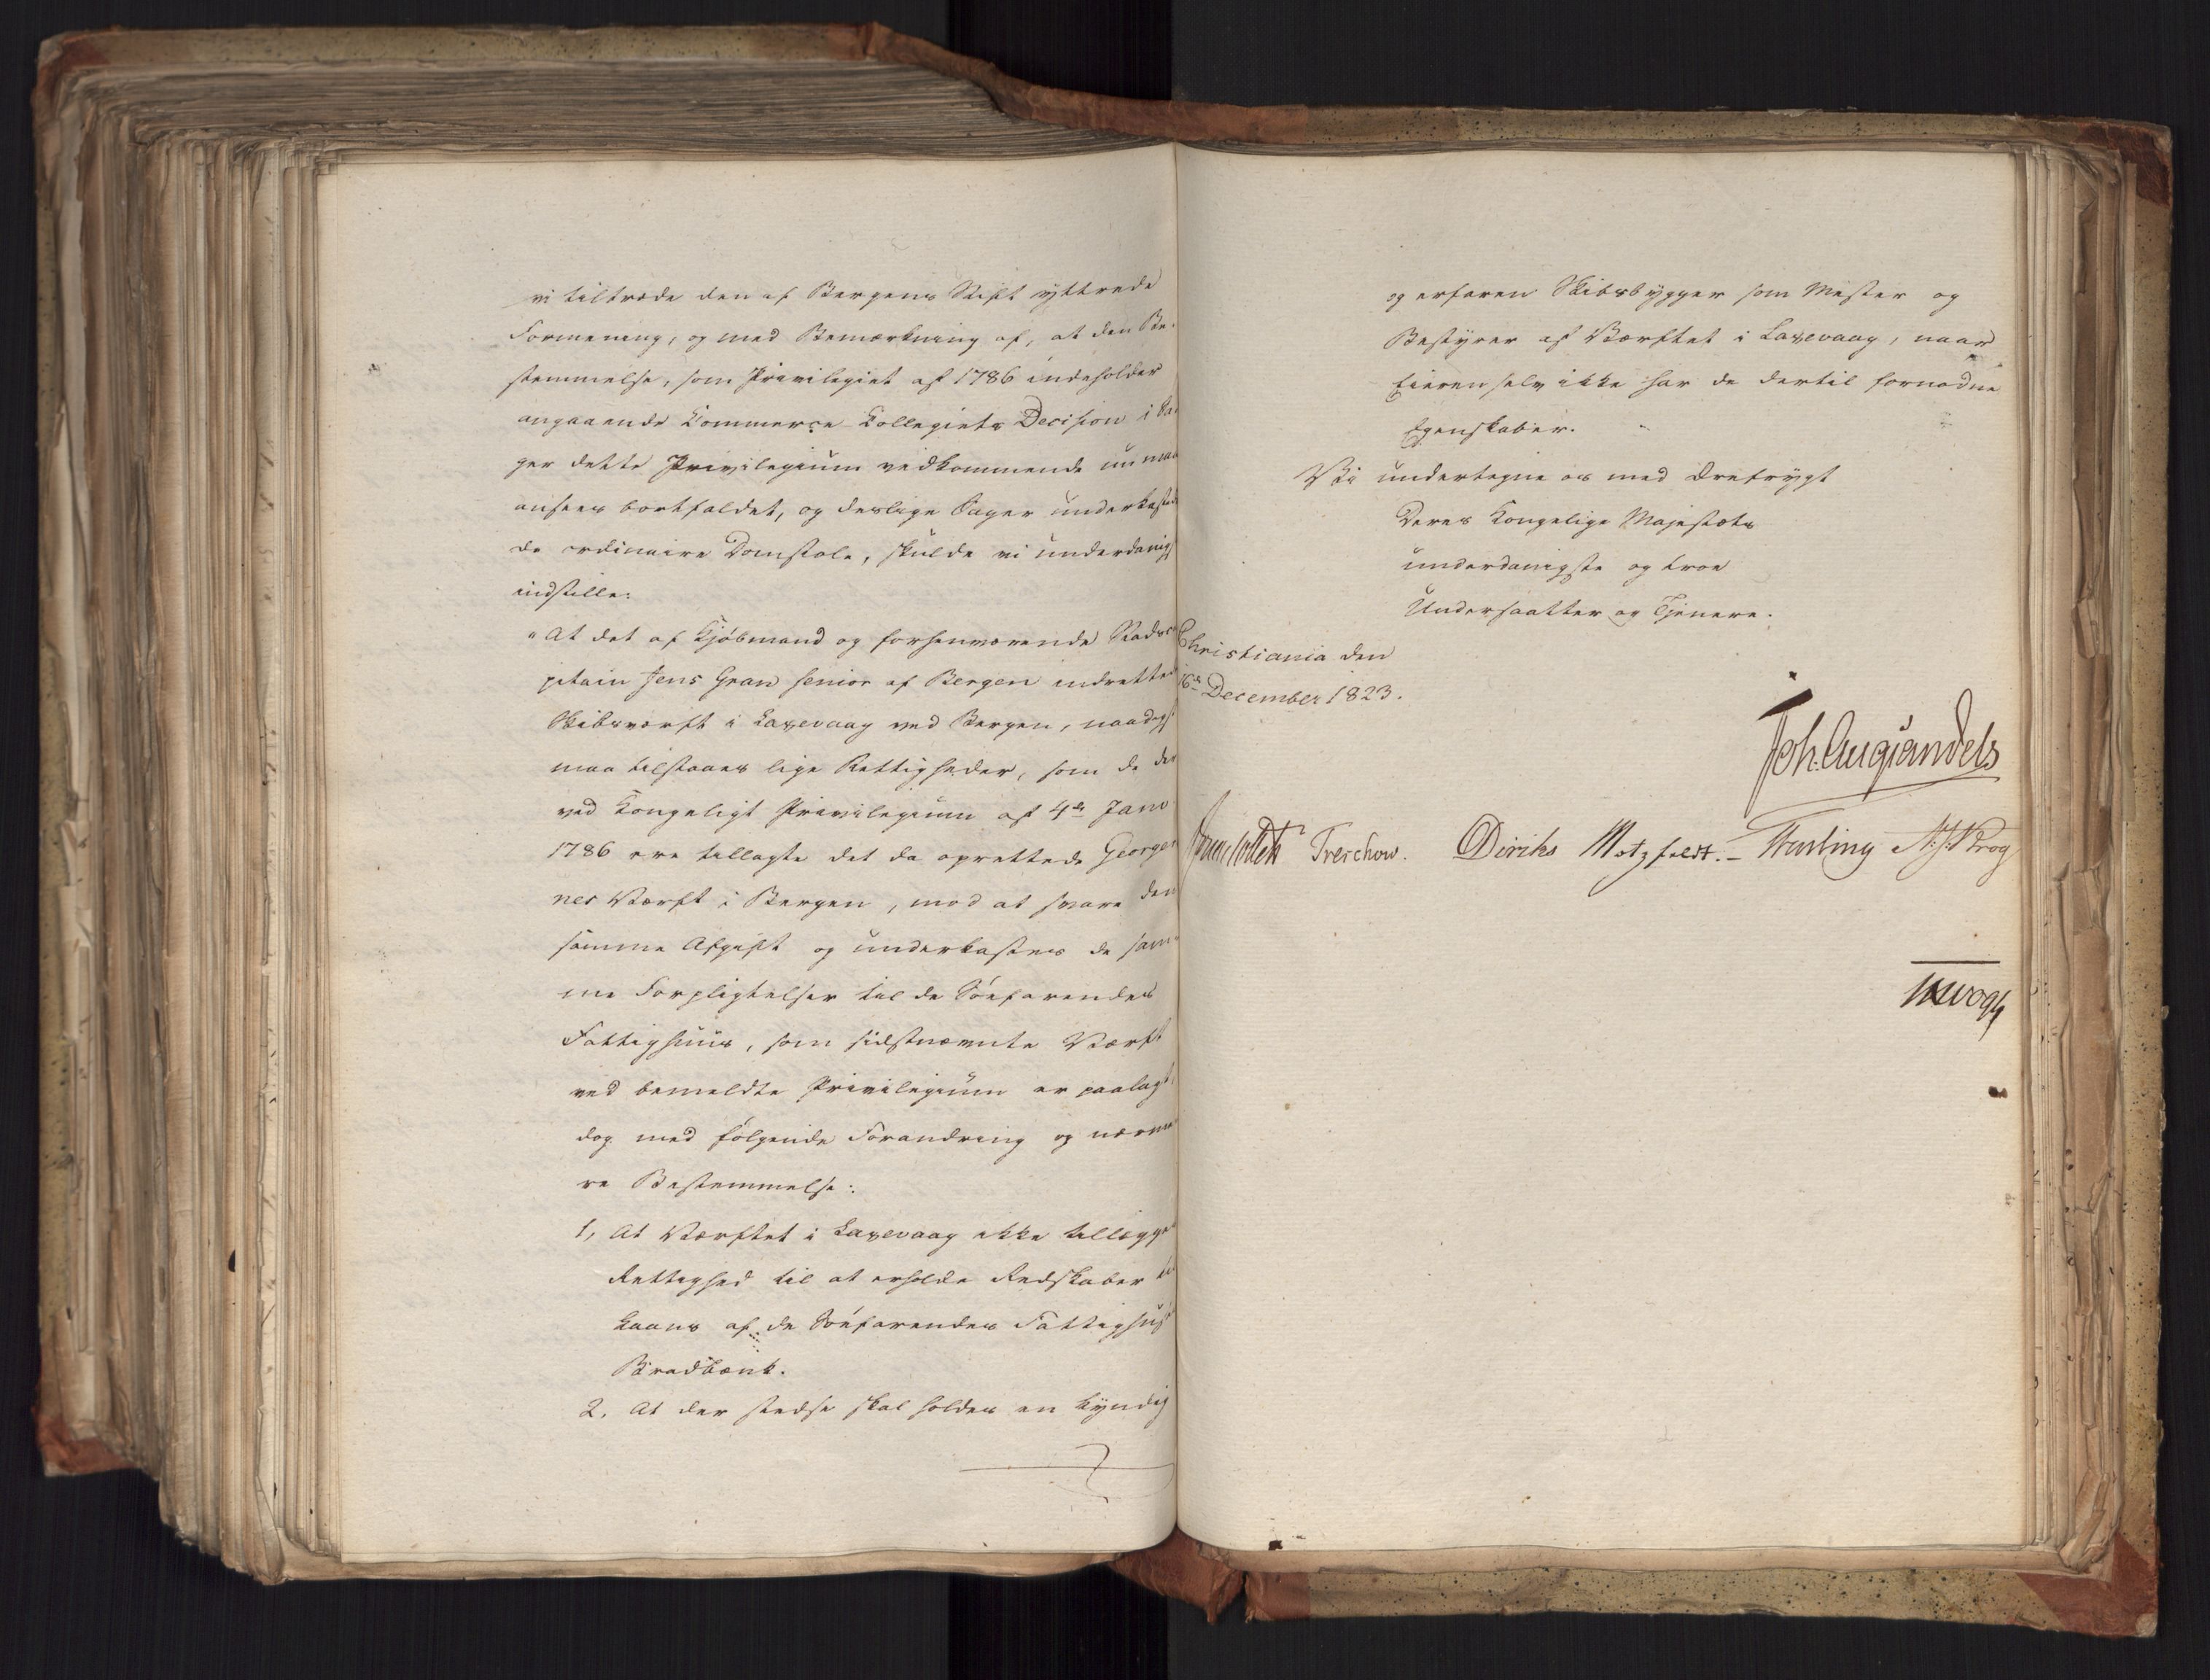 vi tiltræde den af Bergens Stift yttrede
Formening, og med Bemærkning af, at den Be-
stemmelse, som Privilegiet af 1786 indeholder
angaaende Commerce Collegiets Decision i Sa-
ger dette Privilegium vedkommende nu maa
ansees bortfaldet, og deslige Sager underkastede
de ordinaire Domstole, skulde vi underdanigst
indstille:
"At det af Kjöbmand og forhenværende Stadsca-
pitain Jens Gran senior af Bergen indrettede
Skibsværft i Laxevaag ved Bergen, naadigst
maa tilstaaes lige Rettigheder, som de der
ved Kongeligt Privilegium af 4de Janv
1786 ere tillagte det da oprettede Georger-
nes Værft i Bergen, mod at svare den
samme Afgift og underkastes de sam-
me Forpligtelser til de Söefarendes
Fattighuus, som sidstnævnte Værft
ved bemeldte Privilegium er paalagt,
dog med fölgende Forandring og nærme-
re Bestemmelse:
1, At Værftet i Laxevaag ikke tillægges
Rettighed til at erholde Redskaber til
Laans af de Söefarendes Fattighus'
Bradbænk.
2, At der stedse skal holdes en kyndig
og erfaren Skibsbygger som Mester og
Bestyrer af Værftet i Laxevaag, naar
Eieren selv ikke har de dertil fornødne
Egenskaber.
Vi undertegne os med Ærefrygt
Deres Kongelige Majestæts
underdanigste og troe
Undersaatter og Tjenere.
Christiania den
16de December 1823.
Joh. Aug. Sandels
Sommerhielm Treschow. Diriks Motzfeldt. – Fasting N. J. Krog
Vogt